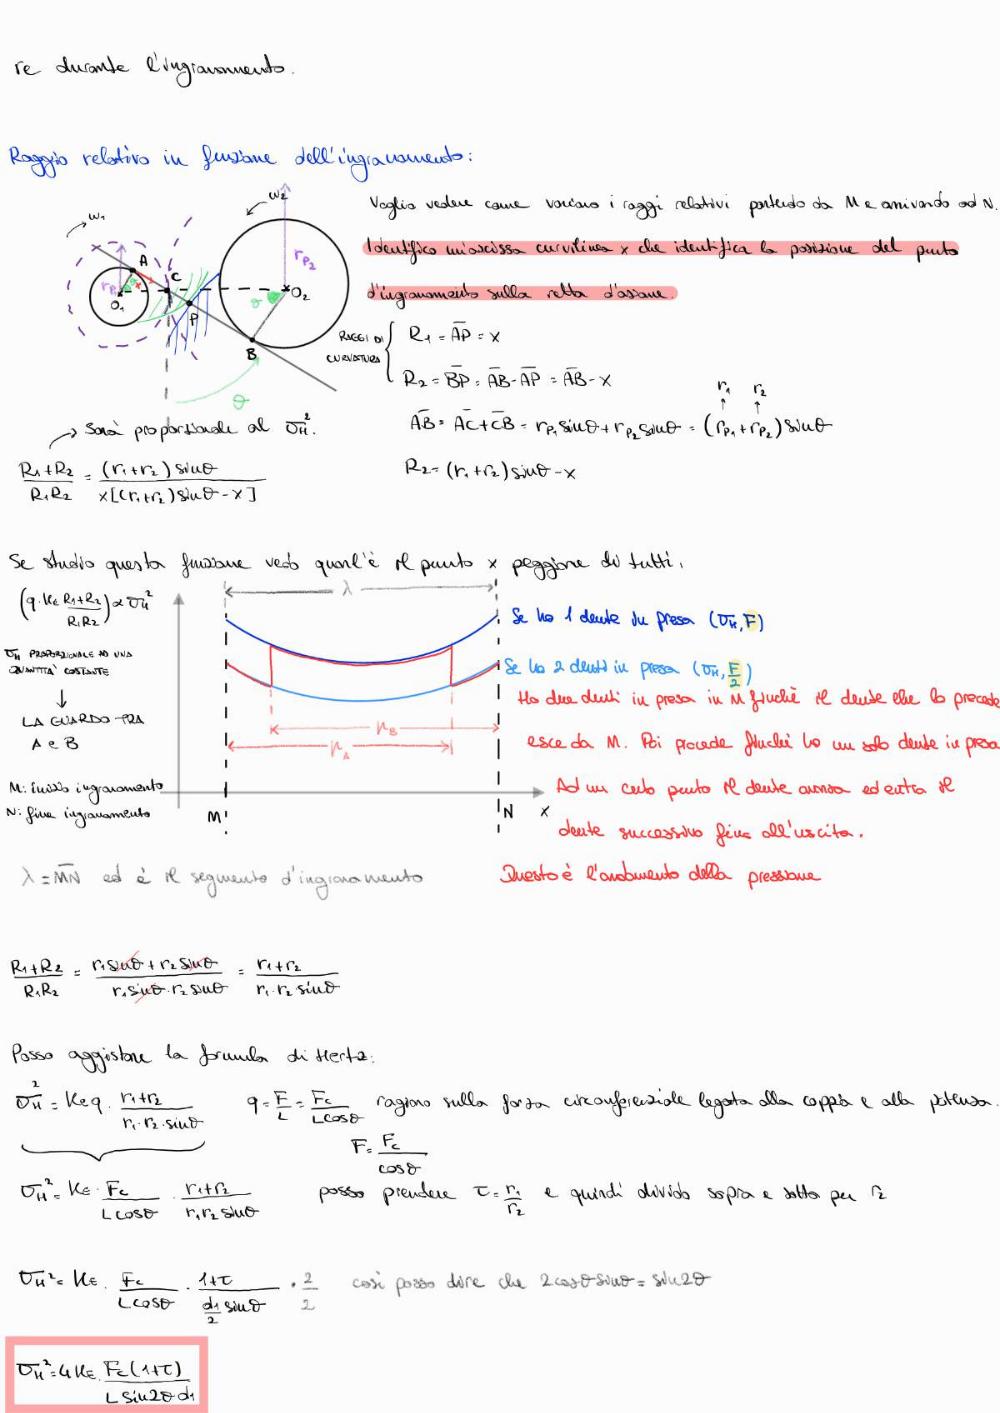 re durante l'ingranamento.
Raggio relativo in funzione dell'ingranamento:
ω₁
ω₂
A
C
P
B
O₁
O₂
r_P₁
r_P₂
θ
θ
Voglio vedere come variano i raggi relativi partendo da M e arrivando ad N.
Identifico un'ascissa curvilinea x che identifica la posizione del punto
d'ingranamento sulla retta d'azione.
RAGGI DI CURVATURA
R₁ = AP = x
R₂ = BP = AB - AP = AB - x
r₁ r₂
AB = AC + CB = r_P₁ sinθ + r_P₂ sinθ = (r_P₁ + r_P₂) sinθ
R₂ = (r₁+r₂) sinθ - x
sarà proporzionale al σ_H².
(R₁+R₂)/(R₁R₂) = (r₁+r₂) sinθ / x[(r₁+r₂) sinθ - x]
Se studio questa funzione vedo qual'è il punto x peggiore di tutti.
(q·K_E (R₁+R₂)/(R₁R₂)) ∝ σ_H²
λ
Se ho 1 dente in presa (σ_H, F)
σ_H PROPORZIONALE AD UNA
QUANTITÀ COSTANTE
Se ho 2 denti in presa (σ_H, F/2)
LA GUARDO TRA
A e B
Ho due denti in presa in M finchè il dente che lo precede
esce da M. Poi procede finchè ho un solo dente in presa
Ad un certo punto il dente avanza ed entra il
dente successivo fino all'uscita.
Questo è l'andamento della pressione
M: inizio ingranamento
N: fine ingranamento
M
N
x
λ = MN ed è il segmento d'ingranamento
(R₁+R₂)/(R₁R₂) = (r₁ sinθ + r₂ sinθ)/(r₁ sinθ · r₂ sinθ) = (r₁+r₂)/(r₁·r₂ sinθ)
Posso aggiustare la formula di Hertz:
σ_H² = K_E q · (r₁+r₂)/(r₁·r₂·sinθ)
q = F/L = F_c/(L cosθ) ragiono sulla forza circonferenziale legata alla coppia e alla potenza.
F = F_c/cosθ
σ_H² = K_E · F_c/(L cosθ) · (r₁+r₂)/(r₁r₂ sinθ)
posso prendere τ = r₁/r₂ e quindi divido sopra e sotto per r₂
σ_H² = K_E · F_c/(L cosθ) · (1+τ)/(d₁/2 sinθ) · 2/2
così posso dire che 2cosθ sinθ = sin2θ
σ_H² = 4K_E · F_c(1+τ)/(L sin2θ d₁)